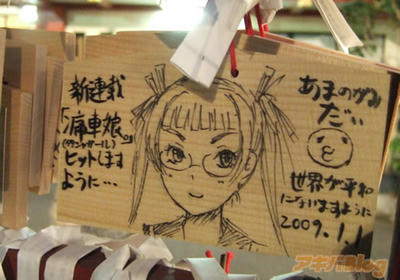 新連載
「痛車娘。」
(イタシャガール)
ヒットします
ように…
あまのがみ
だい
世界が平和
になりますように
2009.1.1
アキバBlog